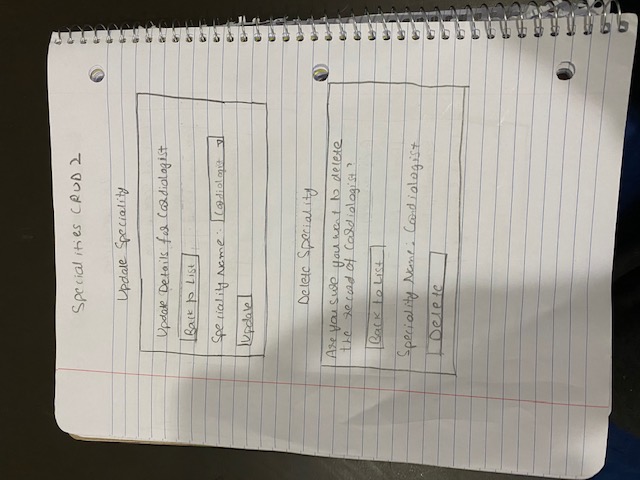 Specialities CRUD 2
Update Speciality
Update Details for Cardiologist
Back to List
Speciality Name: Cardiologist
Update
Delete Speciality
Are you sure you want to delete
the record of Cardiologist?
Back to List
Speciality Name: Cardiologist
Delete